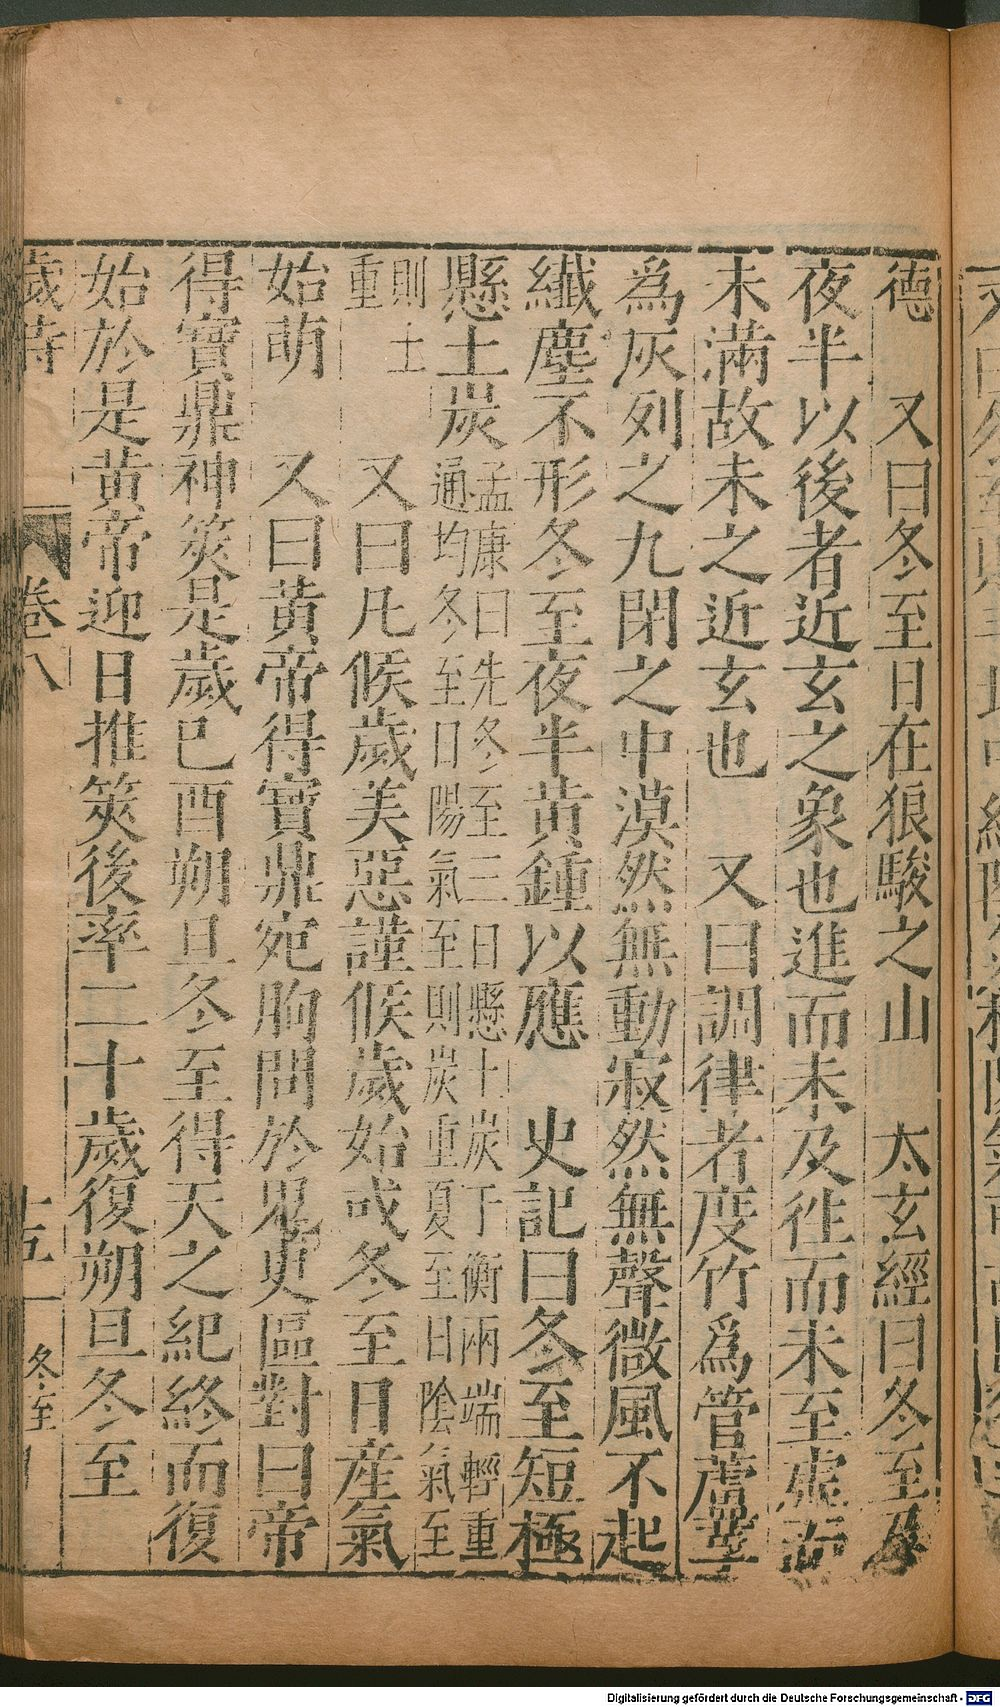 德　又曰冬至日在狼駿之山　太玄經曰冬至及
夜半以後者近玄之象也進而未及徃而未至虛而
未滿故未之近玄也　又曰調律者度竹為管蘆莩
爲灰列之九閉之中漠然無動寂然無聲微風不起
纎塵不形冬至夜半黃鍾以應　史記曰冬至短極
懸土炭孟康曰先冬至三日懸土炭于衡兩端輕重
通均冬至日陽氣至則炭重夏至日陰氣至
則土
重　又曰凡候歲美惡謹候歲始或冬至日產氣
始萌　又曰黃帝得寶鼎宛朐問於鬼㬰區對曰帝
得寶鼎神筴是歲巳酉朔旦冬至得天之紀終而復
始於是黃帝迎日推筴後率二十歲復朔旦冬至
歲時　卷八　十五　冬至
Digitalisierung gefördert durch die Deutsche Forschungsgemeinschaft - DFG